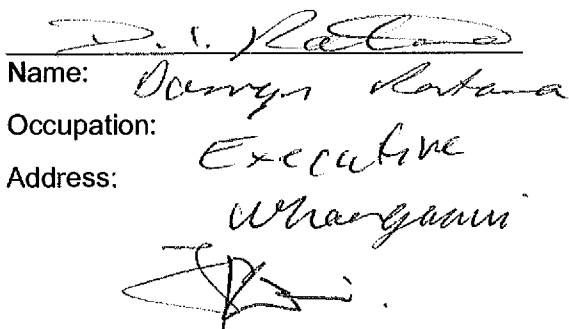 D. Ratana
Name: Ratana
Occupation: Executive
Address: Whanganui